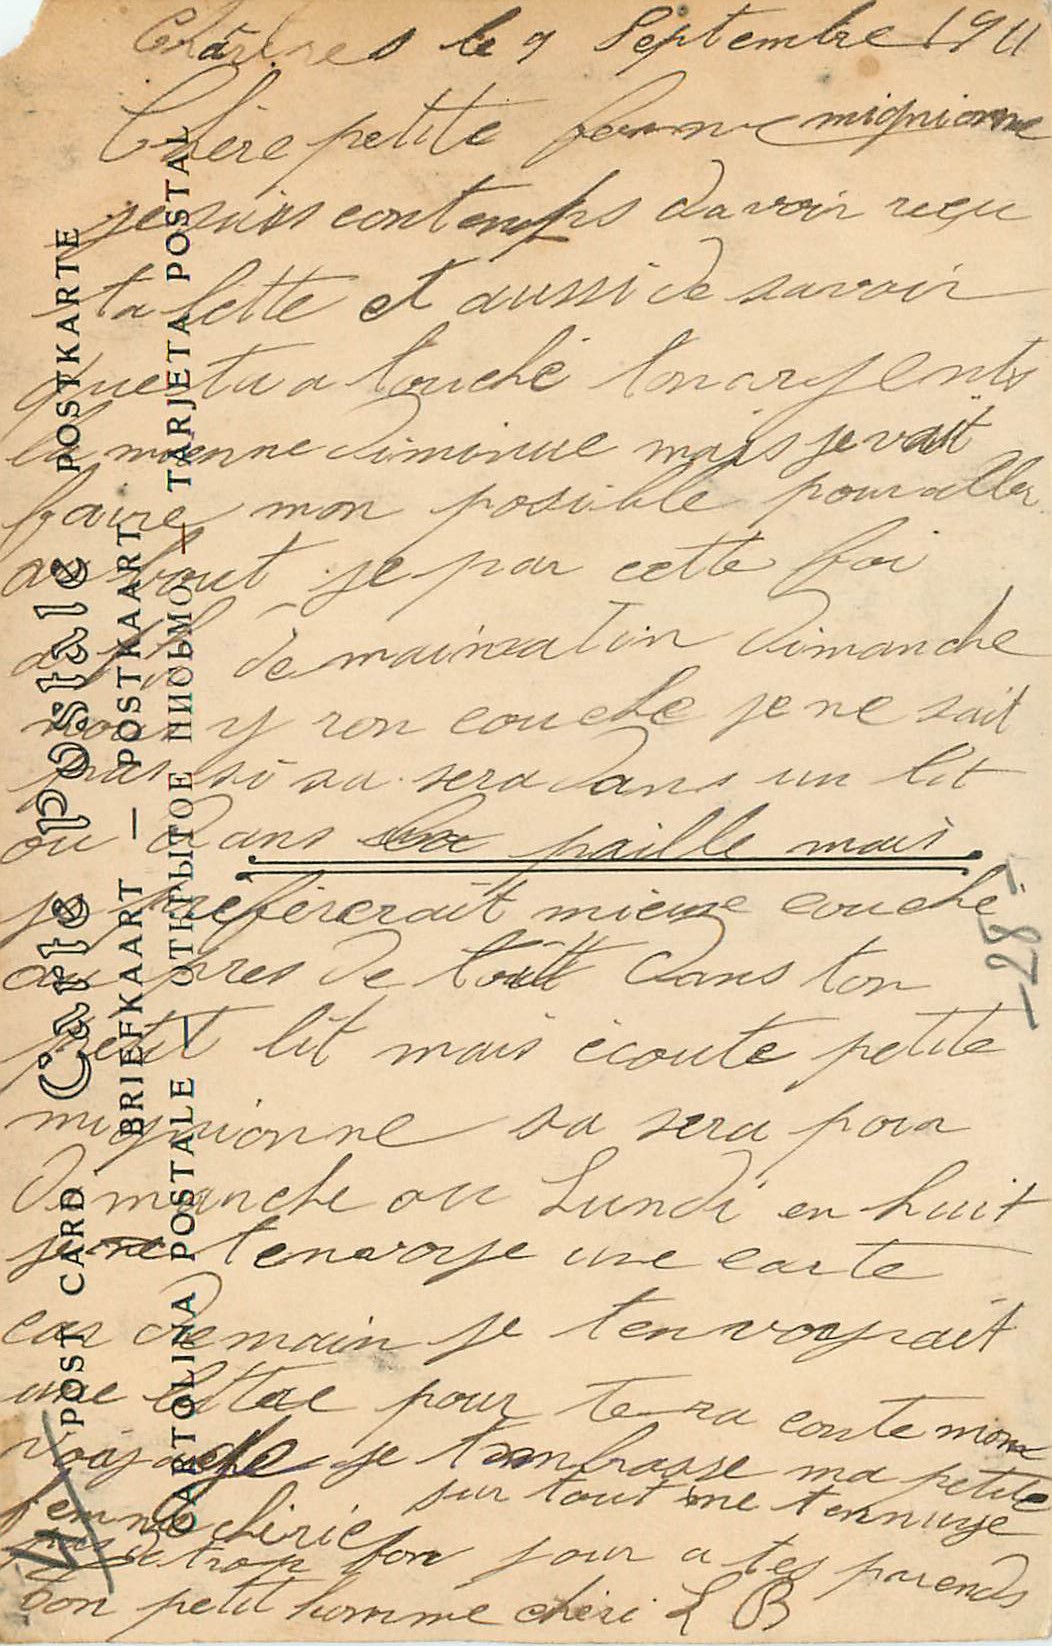 le 9 Septembre 1911
Chère petite femme mignionne
je suis contemps davoir reçu
ta lette et aussi de savoir
que tu a touché ton argents
la mienne diminue mais je vait
faire mon posible pour aller
au bout je par cette foi
demain matin Dimanche
nous y ron couché je ne sait
pas si sa sera dans un lit
ou dans paille mais
je prefererait mieuse couché
au pres de toitt dans ton
petit lit mais écoute petite
mignionne sa sera pour
Dimanche ou Lundi en huit
je tenvoye une carte
car demain je tenvoyrait
une lettre pour te ra conte mon
voiyage je tembrasse ma petite
femme cherie sur tout ne tennuye
pas trop bon jour a tes parends
ton petit homme chéri L B
Carte postale POSTKARTE
POST CARD
BRIEFKAART — POSTKAART
CARTOLINA POSTALE — ОТКРЫТОЕ ПИСЬМО — TARJETA POSTAL
-87-